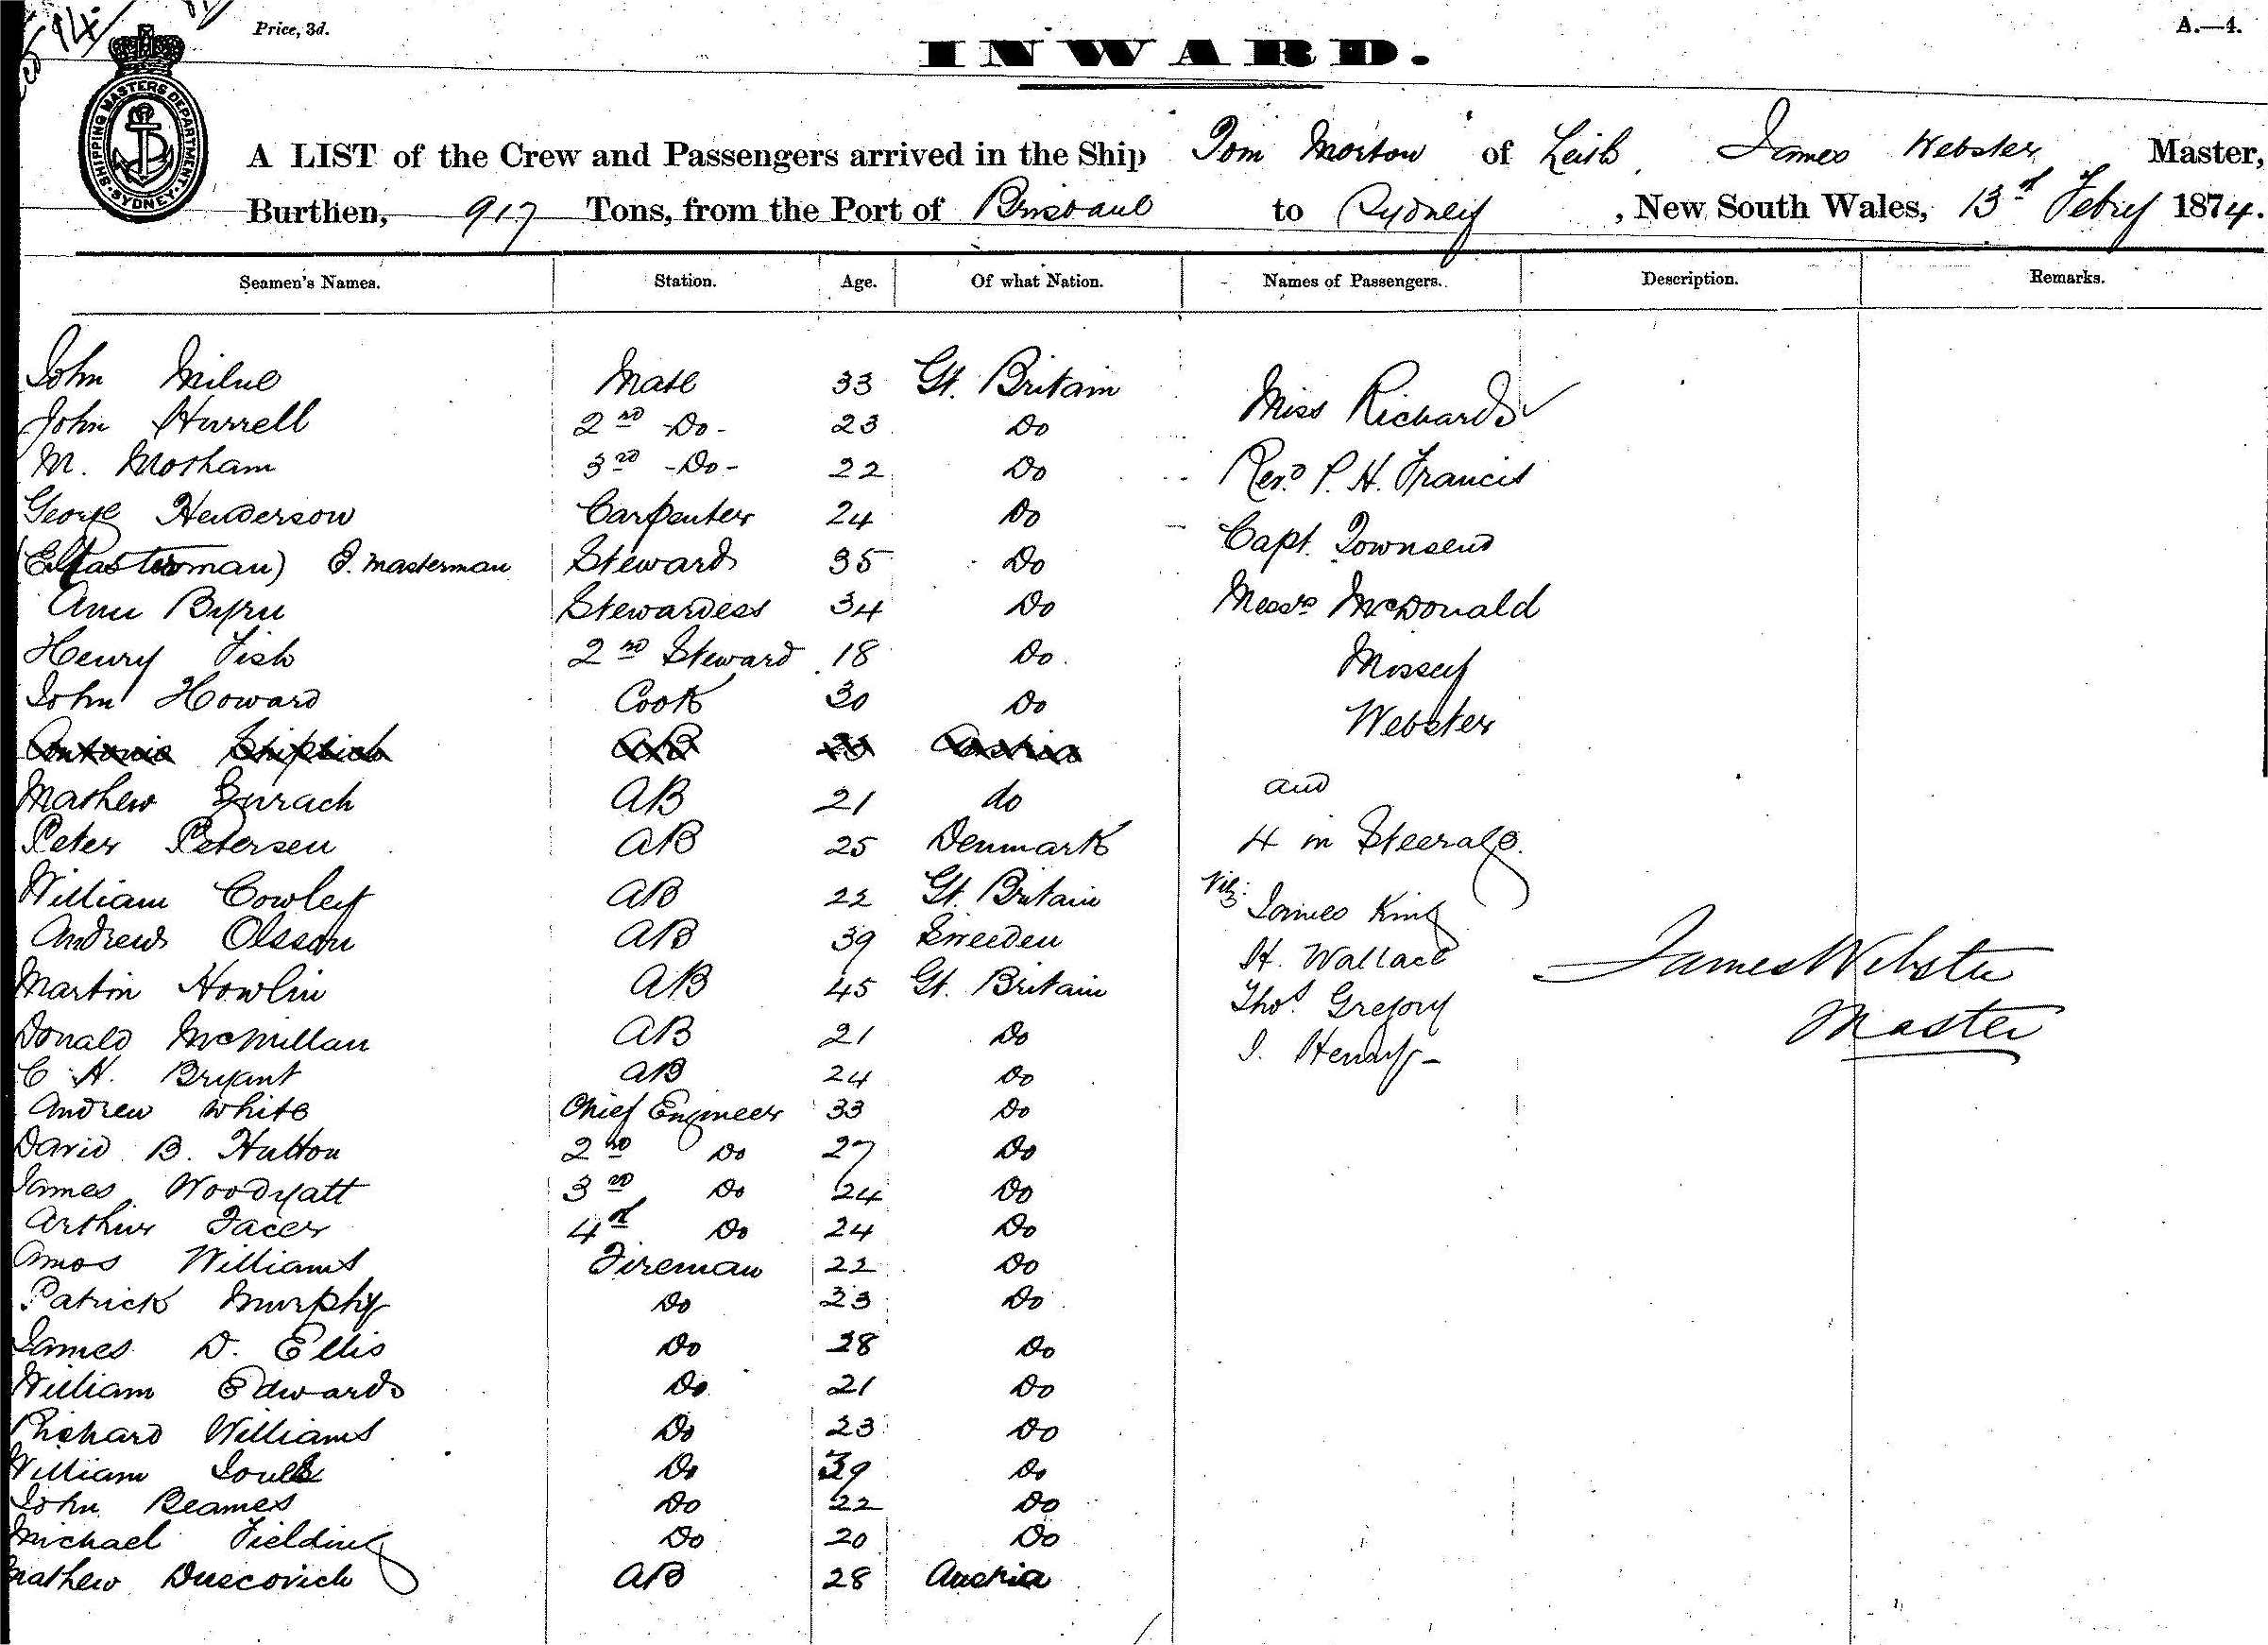 Price, 3d.
A.—4.
INWARD.
SHIPPING MASTERS DEPARTMENT. SYDNEY
A LIST of the Crew and Passengers arrived in the Ship Tom Morton of Leith James Webster Master,
Burthen, 917 Tons, from the Port of Brisbane to Sydney, New South Wales, 13th Febry 1874.
Seamen's Names. Station. Age. Of what Nation. Names of Passengers. Description. Remarks.
John Milne Mate 33 Gt. Britain
Miss Richards
John Hurrell 2nd -Do- 23 Do
M. Mosham 3rd -Do- 22 Do
Revd P. H. Francis
George Henderson Carpenter 24 Do
Capt. Townsend
(E. Masterman) E. Masterman Steward 35 Do
Ann Byrn Stewardess 34 Do Messrs McDonald
Henry Fish 2nd Steward 18 Do Mossey
John Howard Cook 30 Do Webster
Antonio AB Austria
and
Mathew AB 21 do
Peter Petersen AB 25 Denmark 4 in Steerage.
William Cowley AB 22 Gt. Britain Viz: James King
Andrew Olsson AB 39 Sweeden H. Wallace
James Webster
Martin Howlin AB 45 Gt. Britain Thos. Gregory
Master
Donald McMillan AB 21 Do J. Henry -
C H. Bryant AB 24 Do
Andrew White Chief Engineer 33 Do
David B. Hutton 2nd Do 27 Do
James Woodyatt 3rd Do 24 Do
Arthur Facer 4th Do 24 Do
Amos Williams Fireman 22 Do
Patrick Murphy Do 23 Do
James D. Ellis Do 28 Do
William Edwards Do 21 Do
Richard Williams Do 23 Do
William Do 39 Do
John Beames Do 22 Do
Michael Fielding Do 20 Do
Mathew Duecovich AB 28 Austria